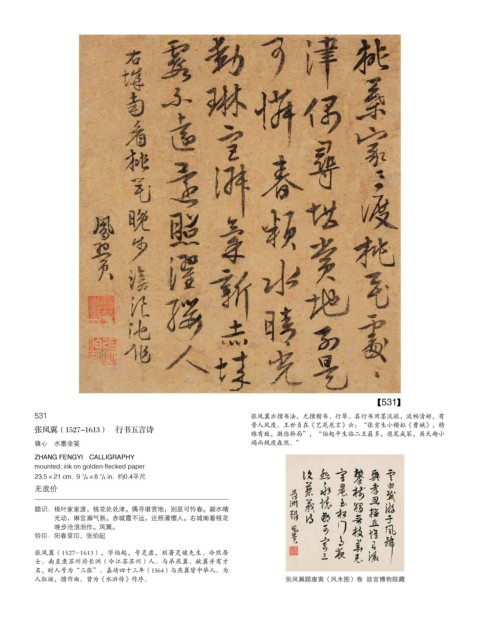 桃葉家〻渡桃花處〻
津偶尋堪賞地別是
可憐春穎水晴光
動琳宮淑氣新赤城
霞不遠還照濯纓人
右城南看桃花晚步滄浪池作
鳳翼
【531】
531
张凤翼（1527-1613） 行书五言诗
镜心 水墨金笺
ZHANG FENGYI CALLIGRAPHY
mounted; ink on golden-flecked paper
23.5 x 21 cm. 9 1/4 x 8 1/4 in. 约0.4平尺
无底价
题识：桃叶家家渡，桃花处处津。偶寻堪赏地，别是可怜春。颖水晴
光动，琳宫淑气新。赤城霞不远，还照濯缨人。右城南看桃花
晚步沧浪池作。凤翼。
钤印：阳春堂印、张伯起
张凤翼（1527-1613），字伯起，号灵虚，别署灵墟先生、泠然居
士。南直隶苏州府长洲（今江苏苏州）人。与弟燕翼、献翼并有才
名，时人号为“三张”。嘉靖四十三年（1564）与燕翼皆中举人。为
人狂诞，擅作曲。曾为《水浒传》作序。
张凤翼亦擅书法，尤擅楷书、行草。其行书用墨浓淡，流畅清妍，有
晋人风度。王世贞在《艺苑卮言》云：
“伯起平生临二王最多，退笔成冢，虽天趣小
竭而规度森然。”
张凤翼题唐寅《风木图》卷 故宫博物院藏